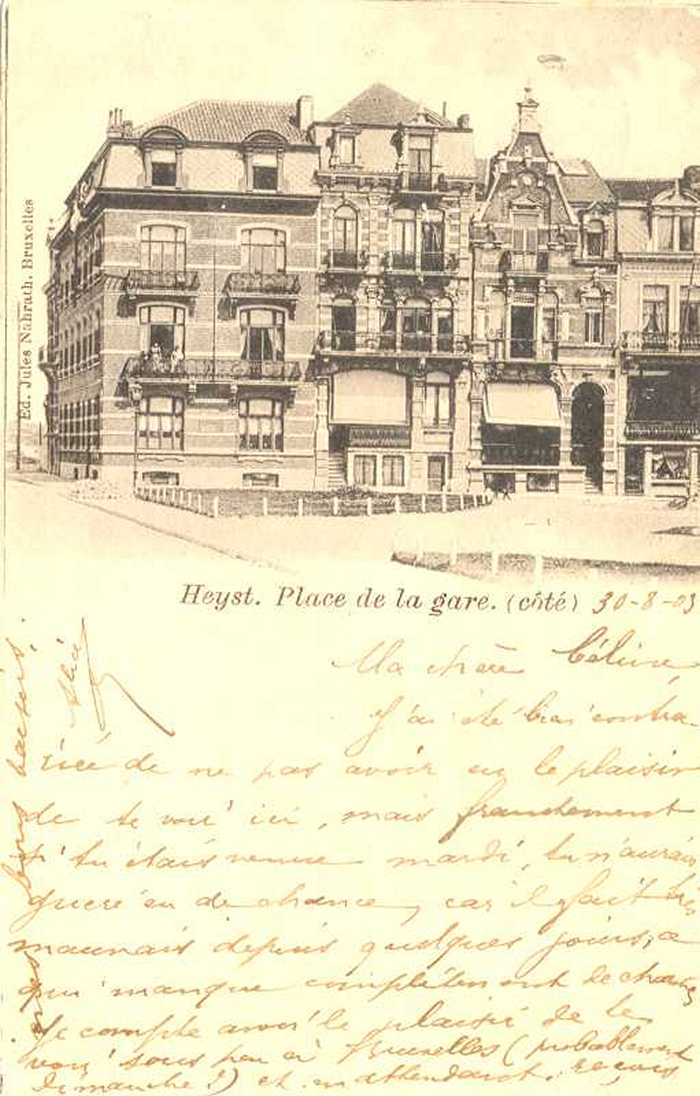 Ed. Jules Nahrath, Bruxelles
Heyst. Place de la gare. (côté) 30-8-03
Ma chère Céline,
J'ai été bien contra-
riée de ne pas avoir eu le plaisir
de te voir ici, mais franchement
si tu étais venue mardi, tu n'aurais
guère eu de chance, car il fait très
mauvais depuis quelques jours,
qui manque complètement de
Je compte avoir le plaisir de te
voir sous peu à Bruxelles (probablement
Dimanche!) et en attendant, reçois
bons baisers.